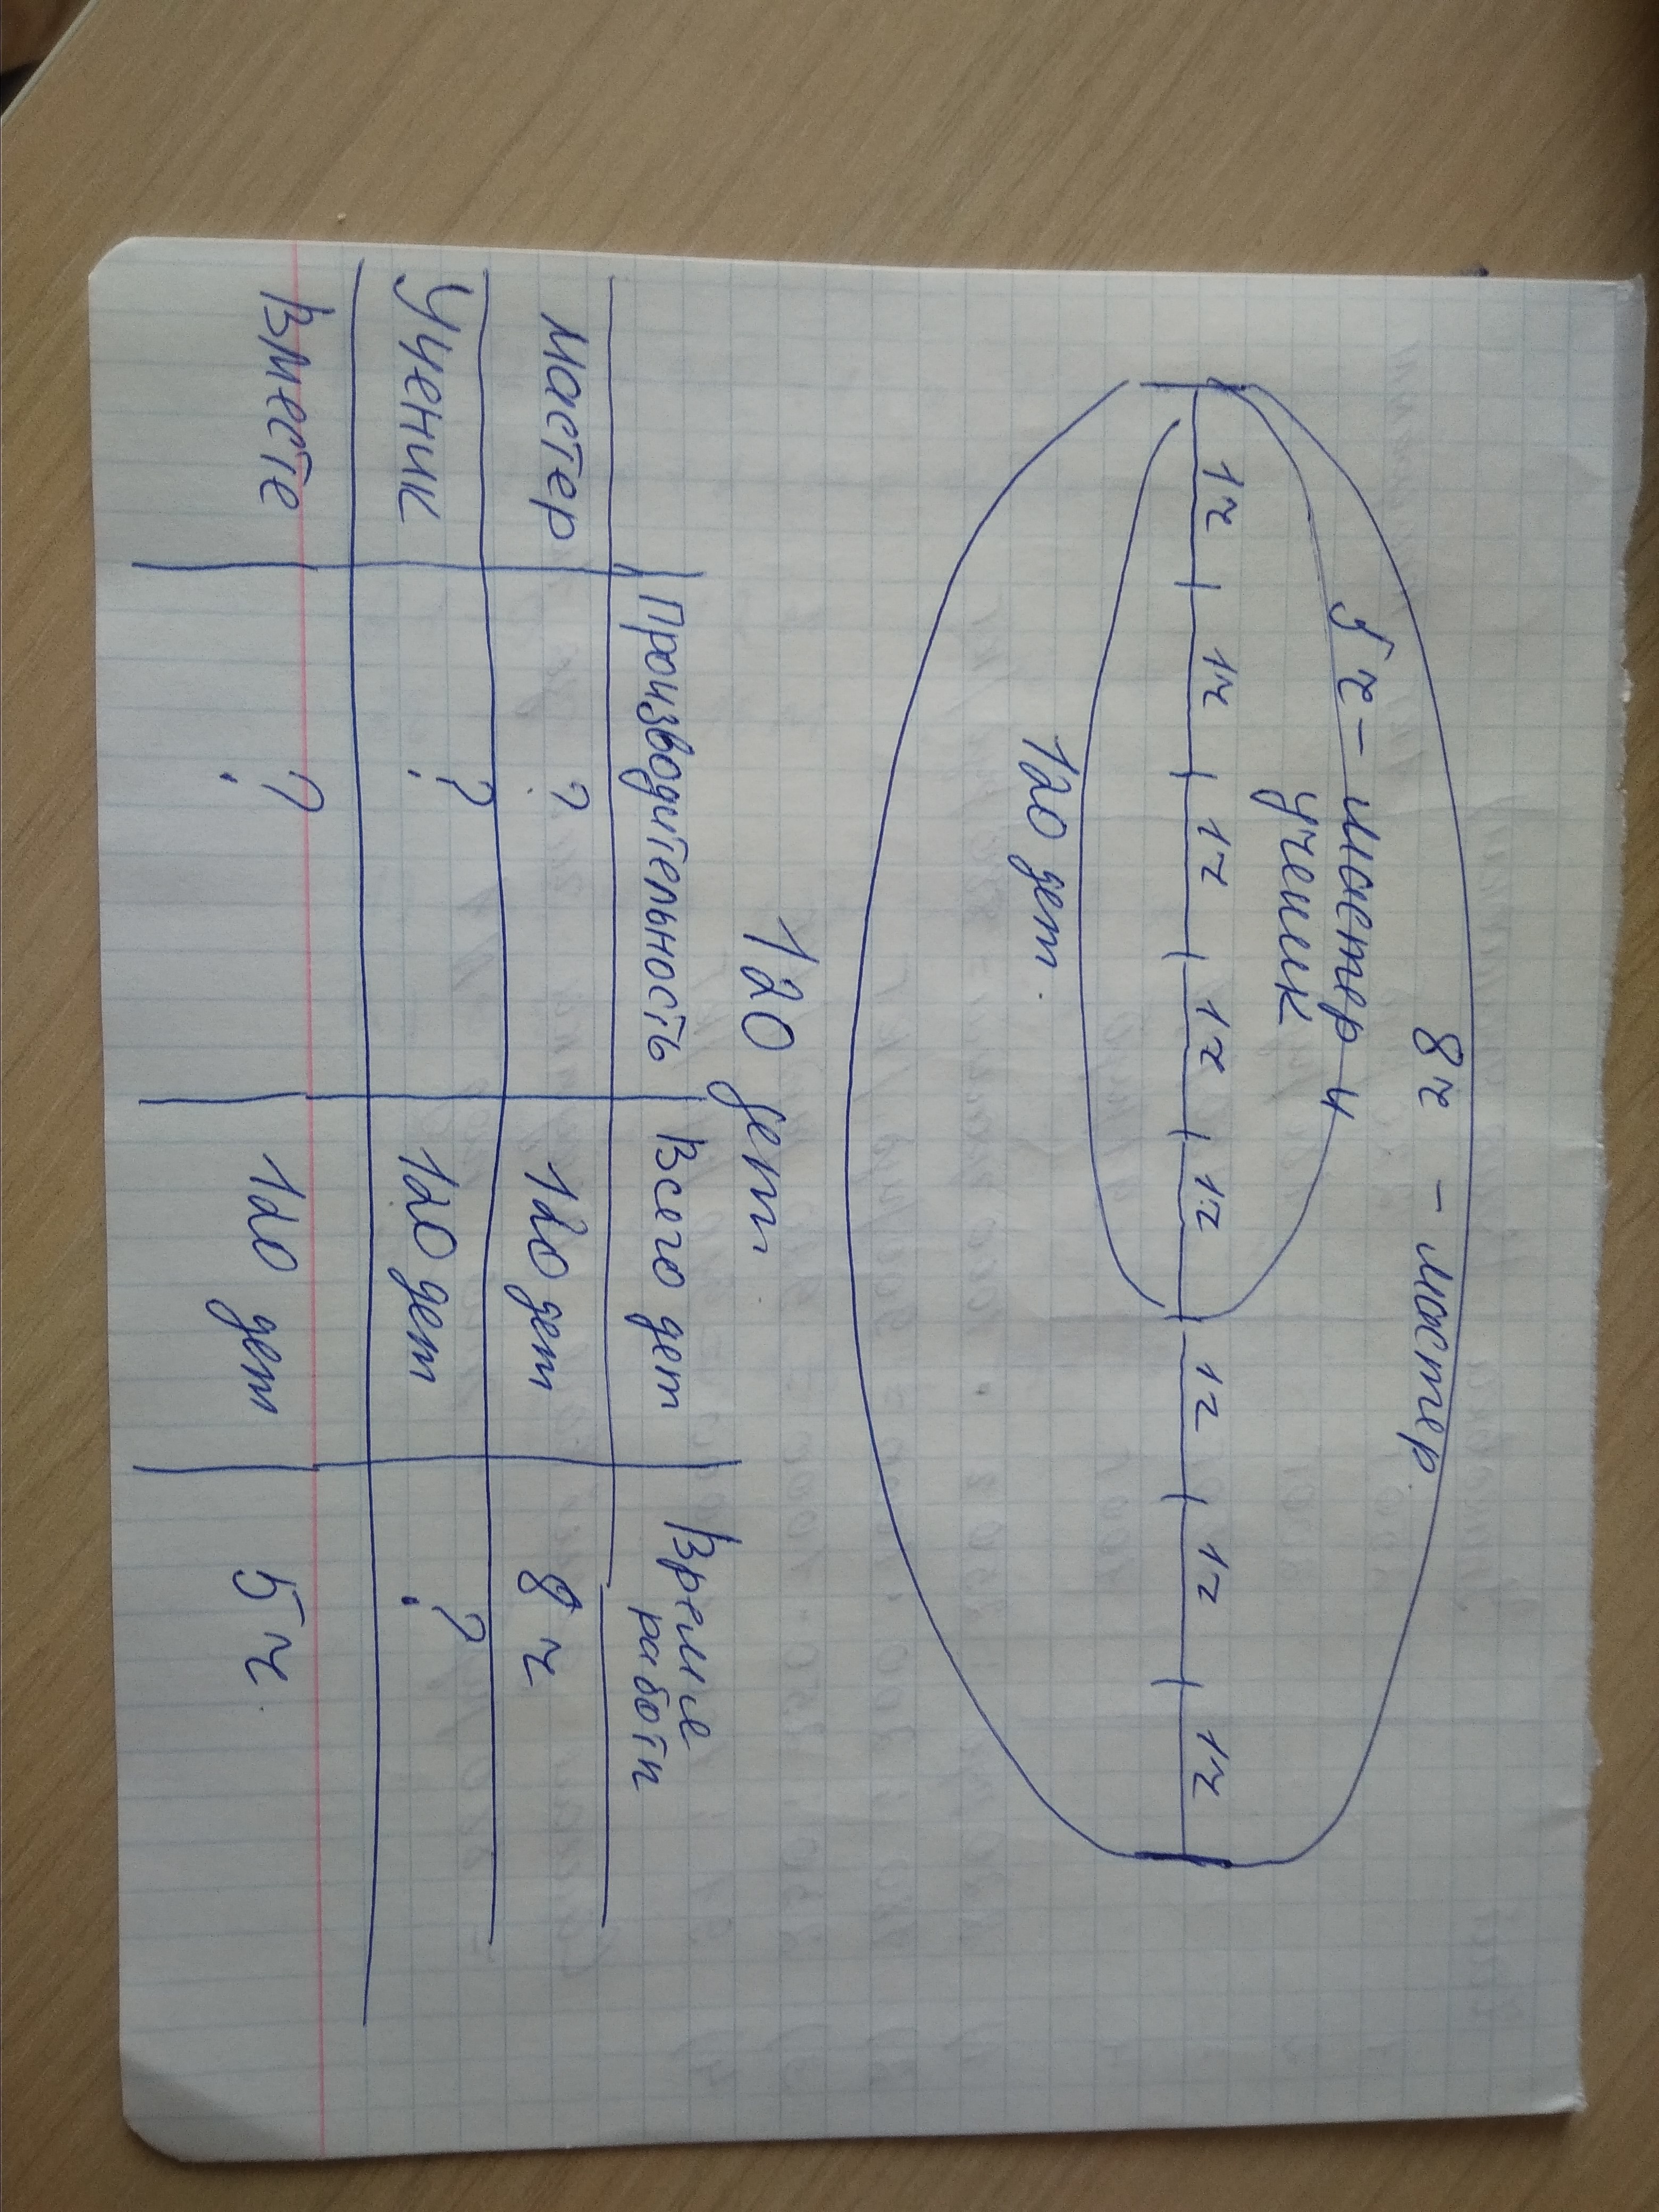 8 ч - мастер.
5 ч - мастер и
ученик
1ч 1ч 1ч 1ч 1ч 1ч 1ч 1ч
120 дет.
120 дет.
Производительность Всего дет Время
работы
Мастер ? 120 дет 8 ч
Ученик ? 120 дет ?
Вместе ? 120 дет 5 ч.